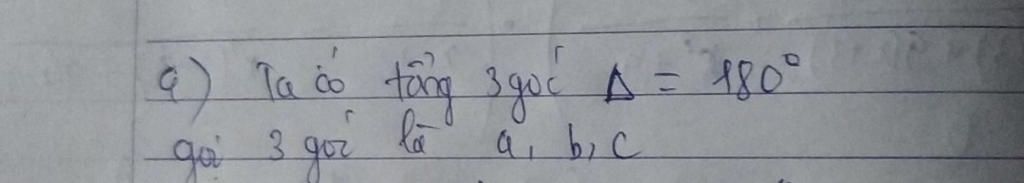 a) Ta có tổng 3 góc Δ = 180°
gọi 3 góc là a, b, c